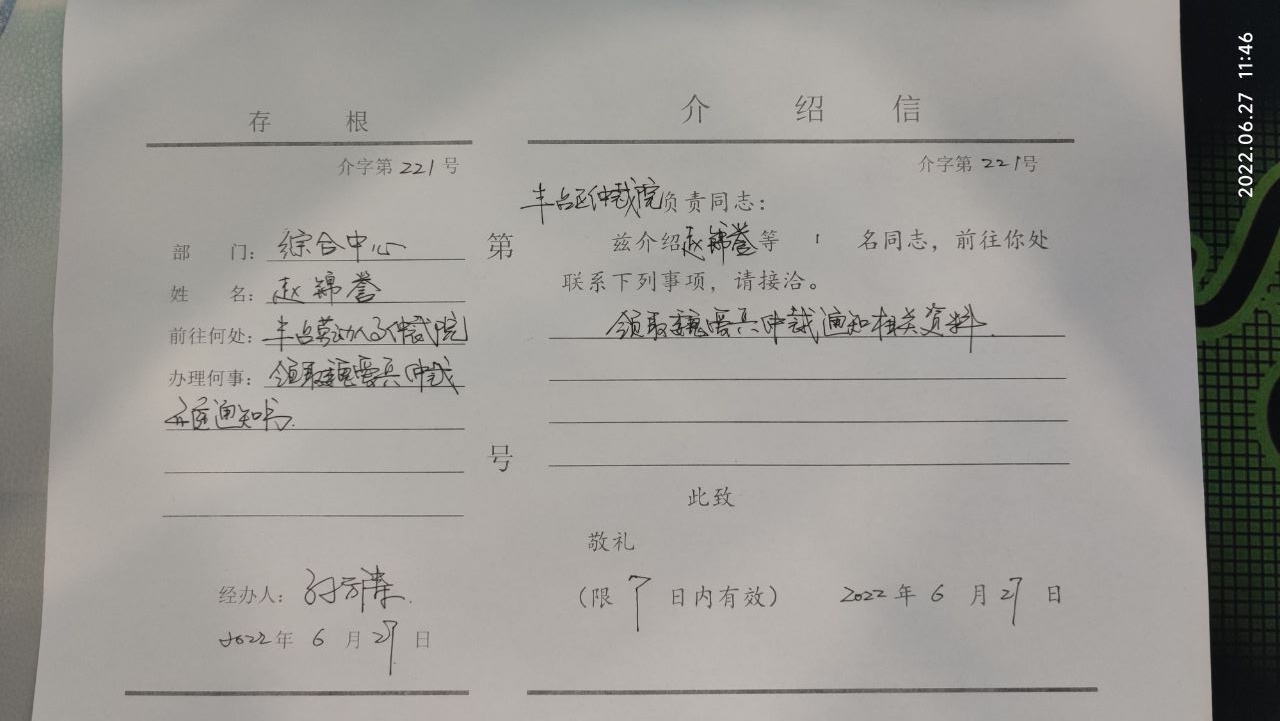 存 根
介字第 221 号
部 门: 综合中心
姓 名: 赵锦誉
前往何处: 丰台劳动人事仲裁院
办理何事: 领取魏爱兵仲裁
开庭通知书.
经办人: 孙
2022年 6 月 27 日
第
号
介 绍 信
介字第 221号
丰台区仲裁院负责同志:
兹介绍赵锦誉等 1 名同志, 前往你处
联系下列事项, 请接洽。
领取魏爱兵仲裁通知相关资料.
此致
敬礼
(限 7 日内有效) 2022 年 6 月 27 日
2022.06.27 11:46